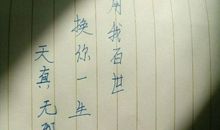 用我百世
换你一生
天真无邪